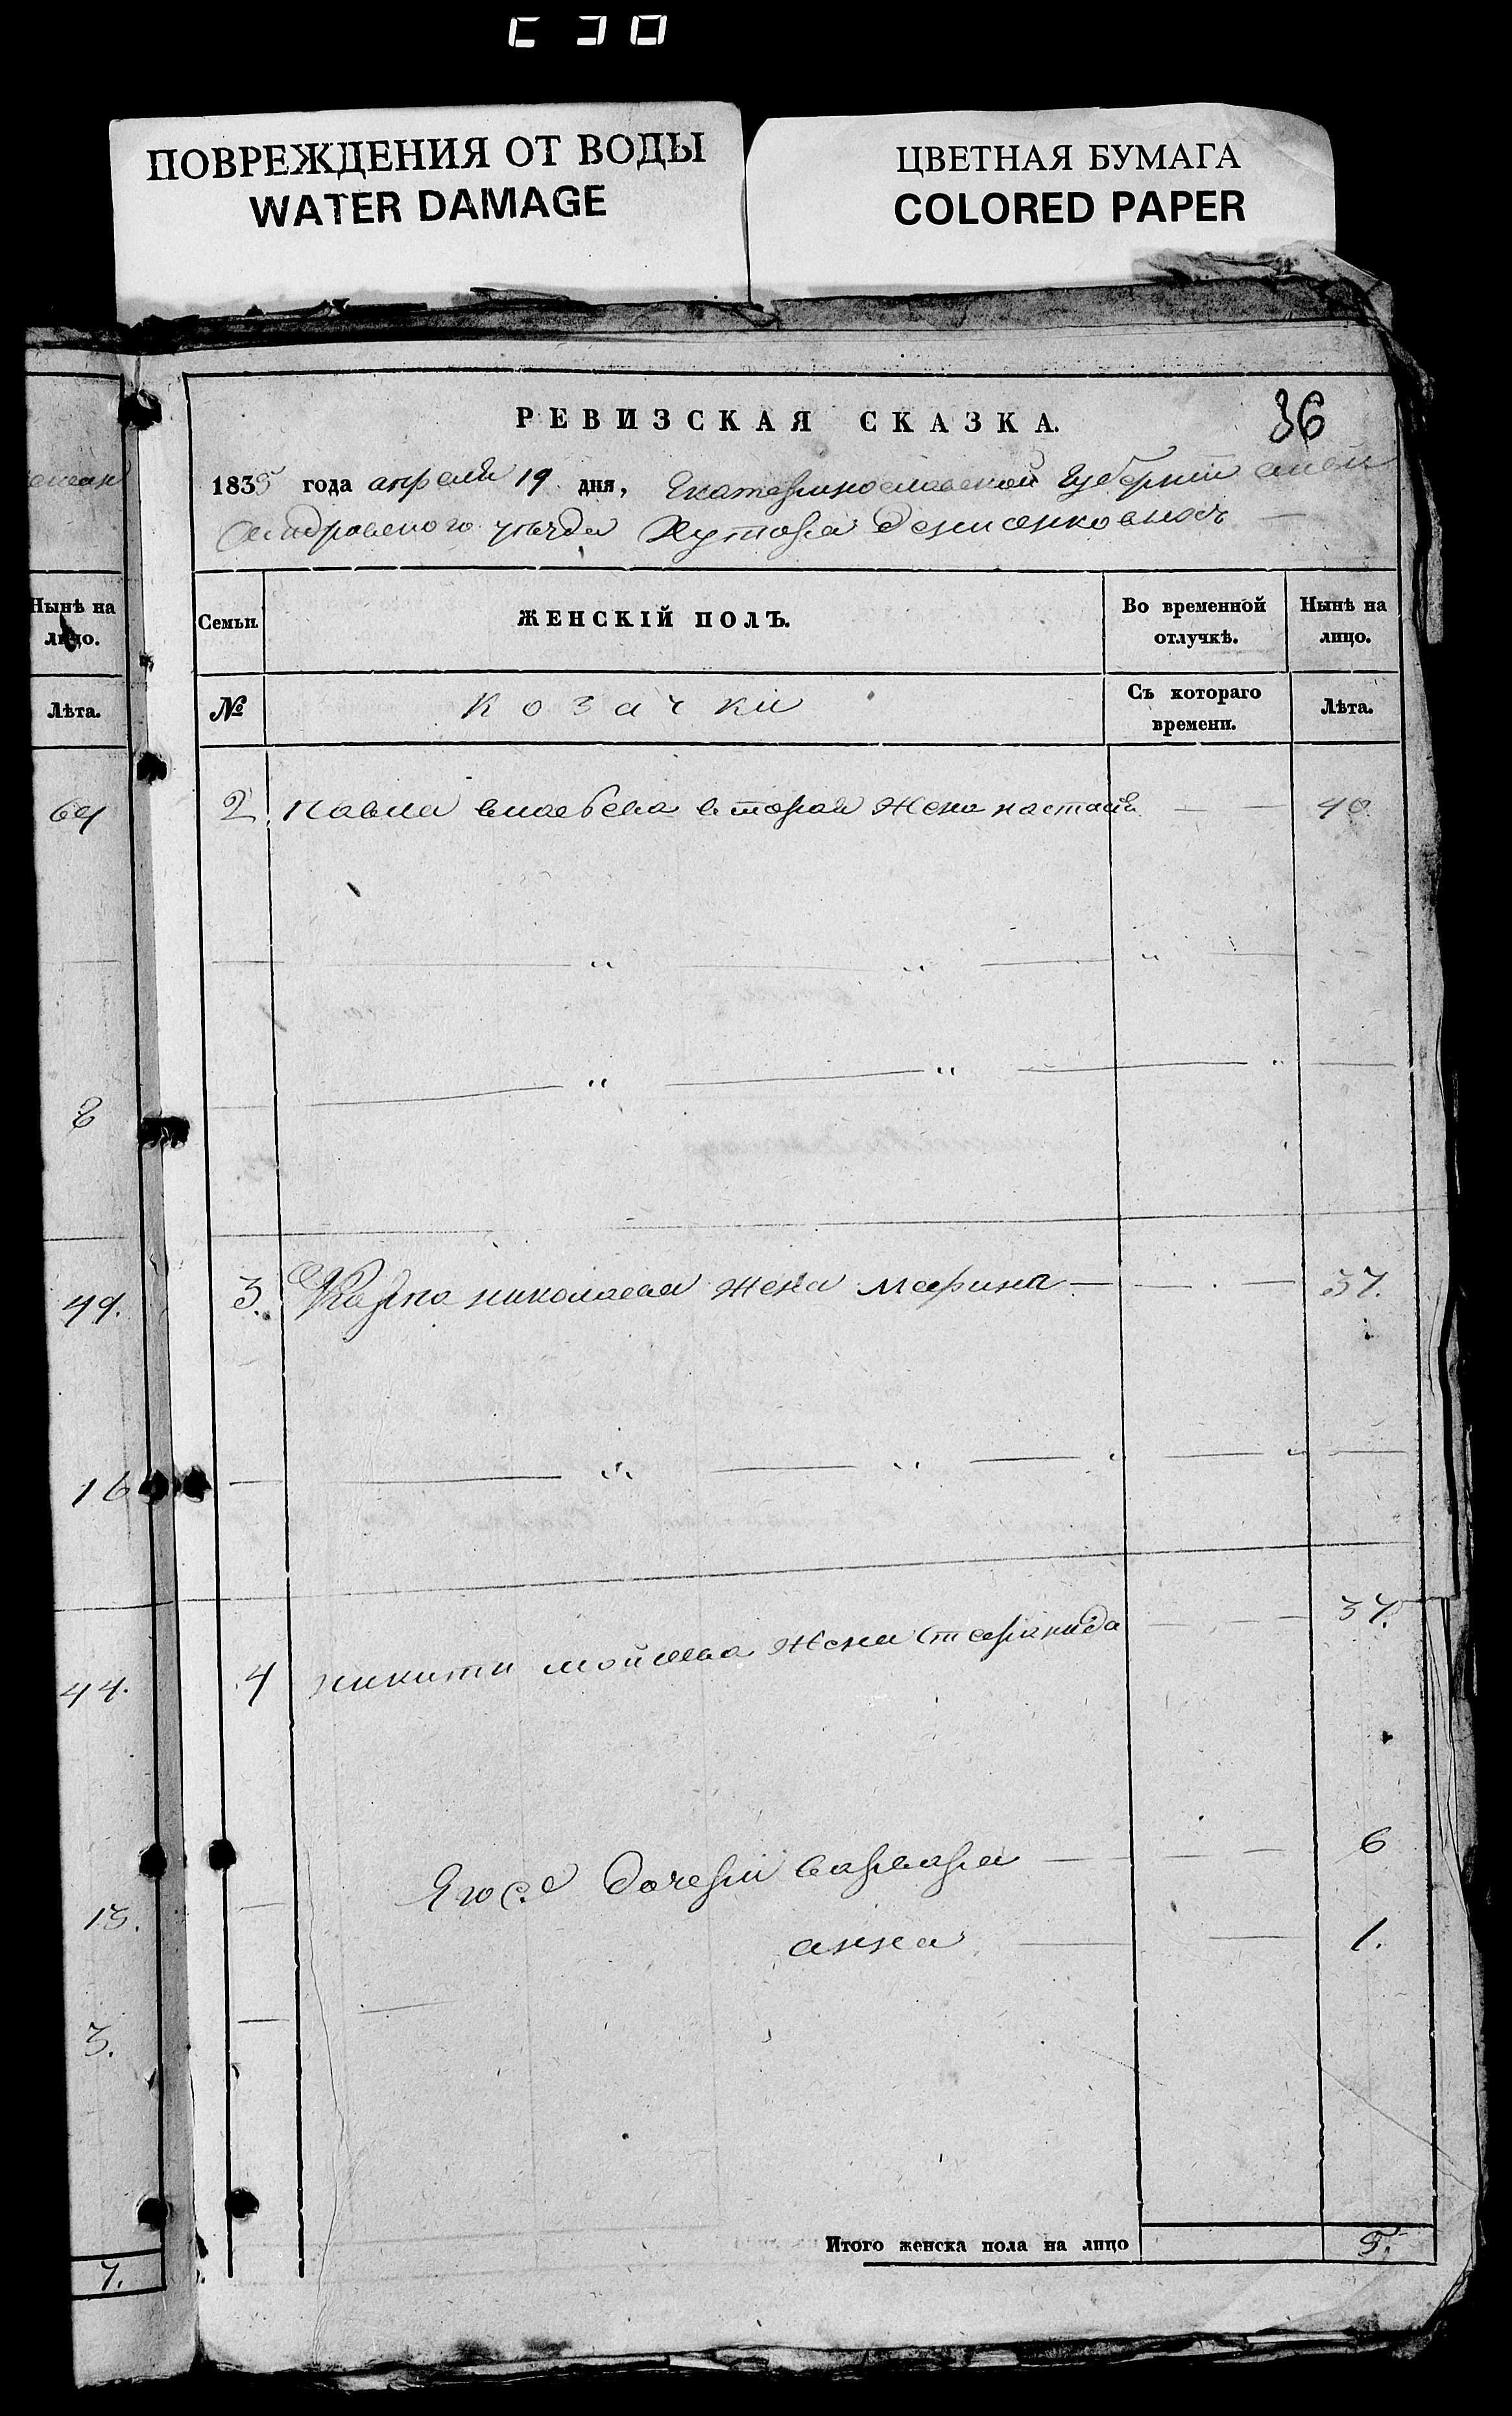 ПОВРЕЖДЕНИЯ ОТ ВОДЫ
WATER DAMAGE
ЦВЕТНАЯ БУМАГА
COLORED PAPER
РЕВИЗСКАЯ СКАЗКА.
36
1835 года апреля 19 дня, Екатеринославской Губернии алек
сандровского уезда Хутора Денисенковыхъ
Нынѣ на
лицо.
Лѣта.
Семьи.
ЖЕНСКІЙ ПОЛЪ.
Во временной
отлучкѣ.
Нынѣ на
лицо.
№
Козачки
Съ котораго
времени.
Лѣта.
64
2 павла вторая жена настасія 40
8
49.
3. Карпа николаева жена марина 37.
16
44.
4 никити мойсеева жена 37.
Его дочери варвара 6
13.
анна 1.
3.
Итого женска пола на лицо 5.
7.